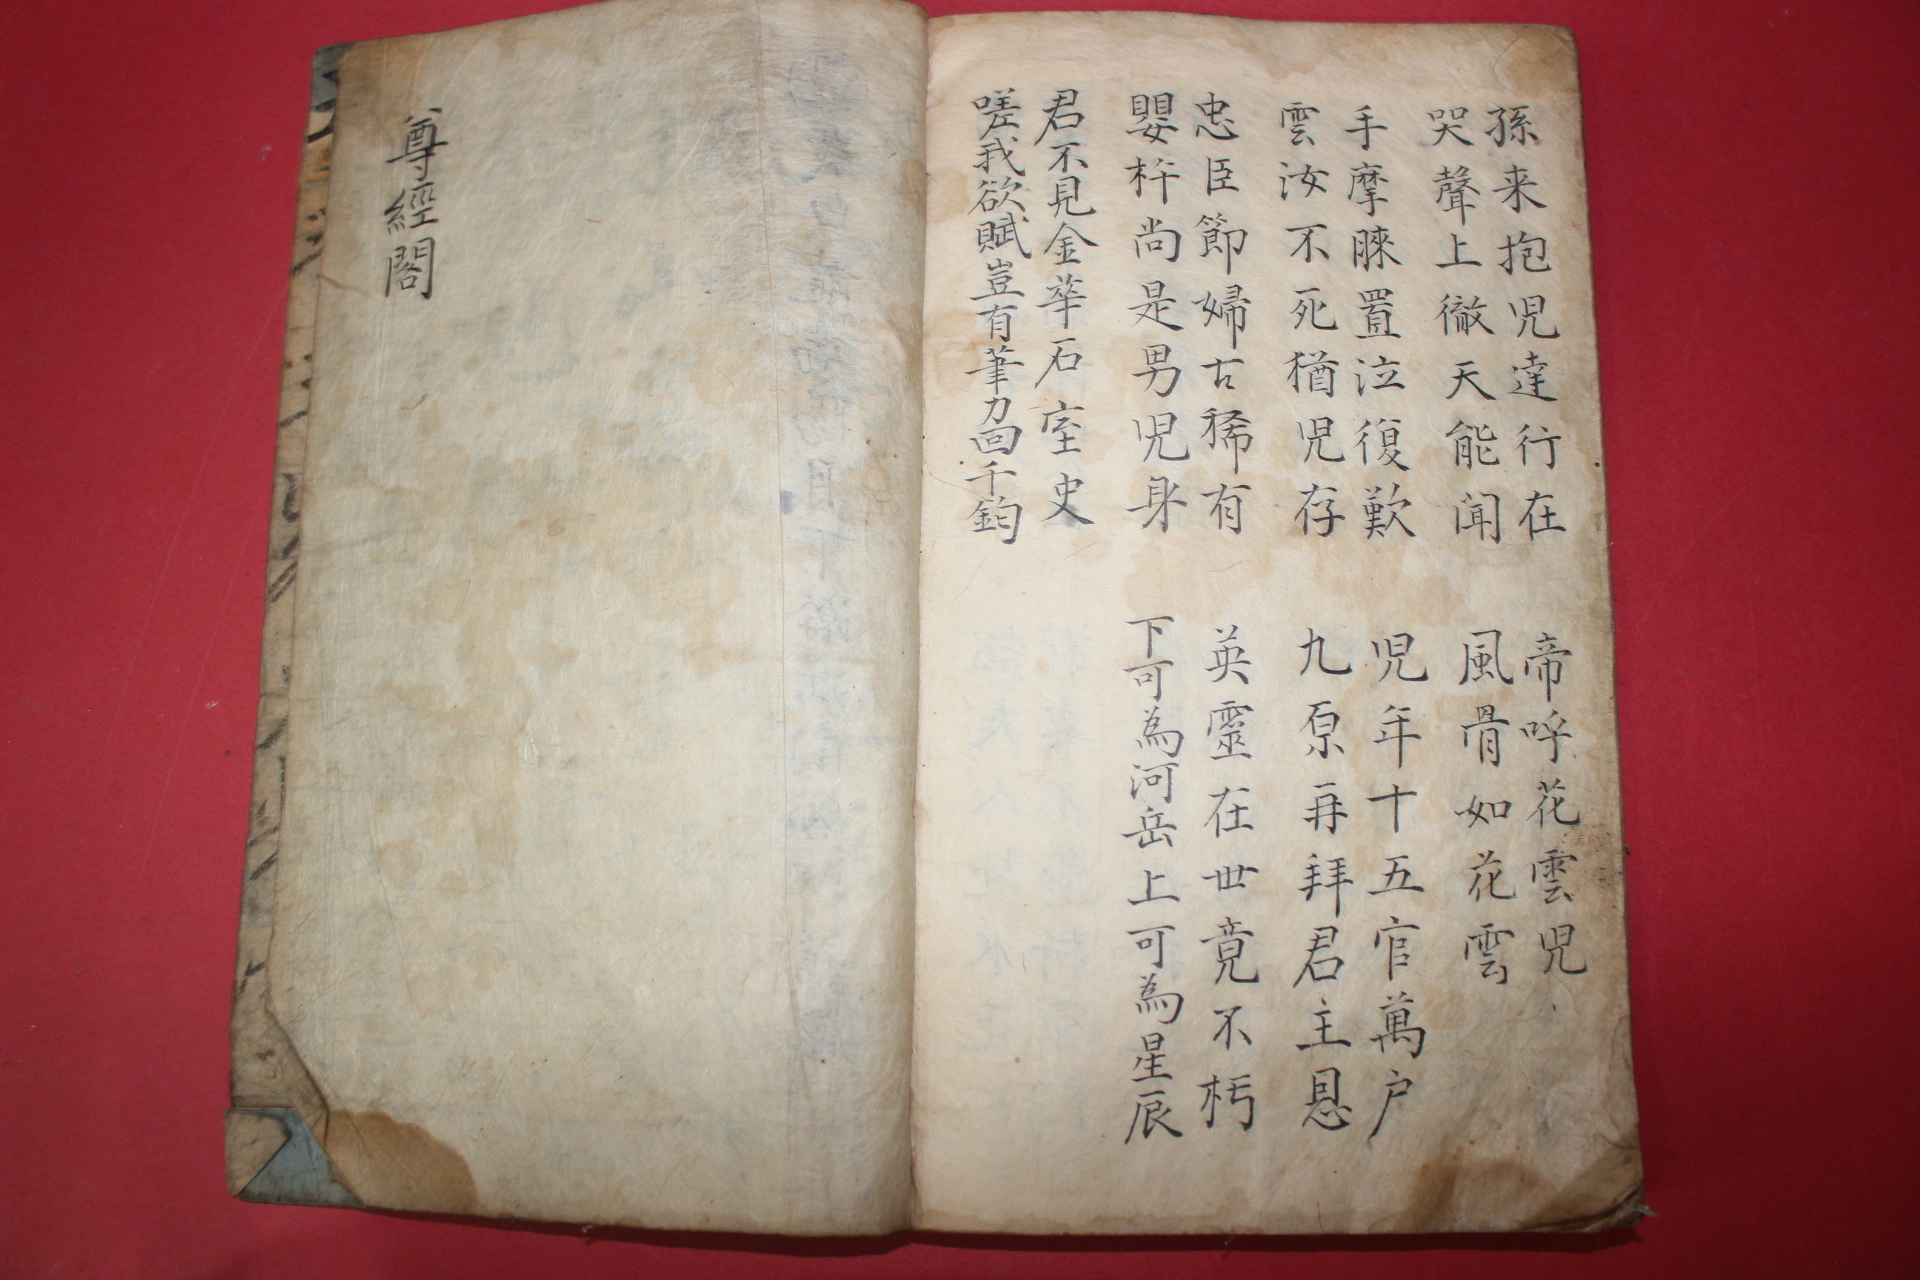 孫来抱児達行在
帝呼花雲児
哭聲上徹天能闻
風骨如花雲
手摩膝置泣復歎
児年十五官萬户
雲汝不死猶児存
九原再拜君主恩
忠臣節婦古稀有
英靈在世竟不朽
嬰杵尚是男児身
下可為河岳上可為星辰
君不見金華石室史
嗟我欲賦豈有筆力回千鈞
尊經閣